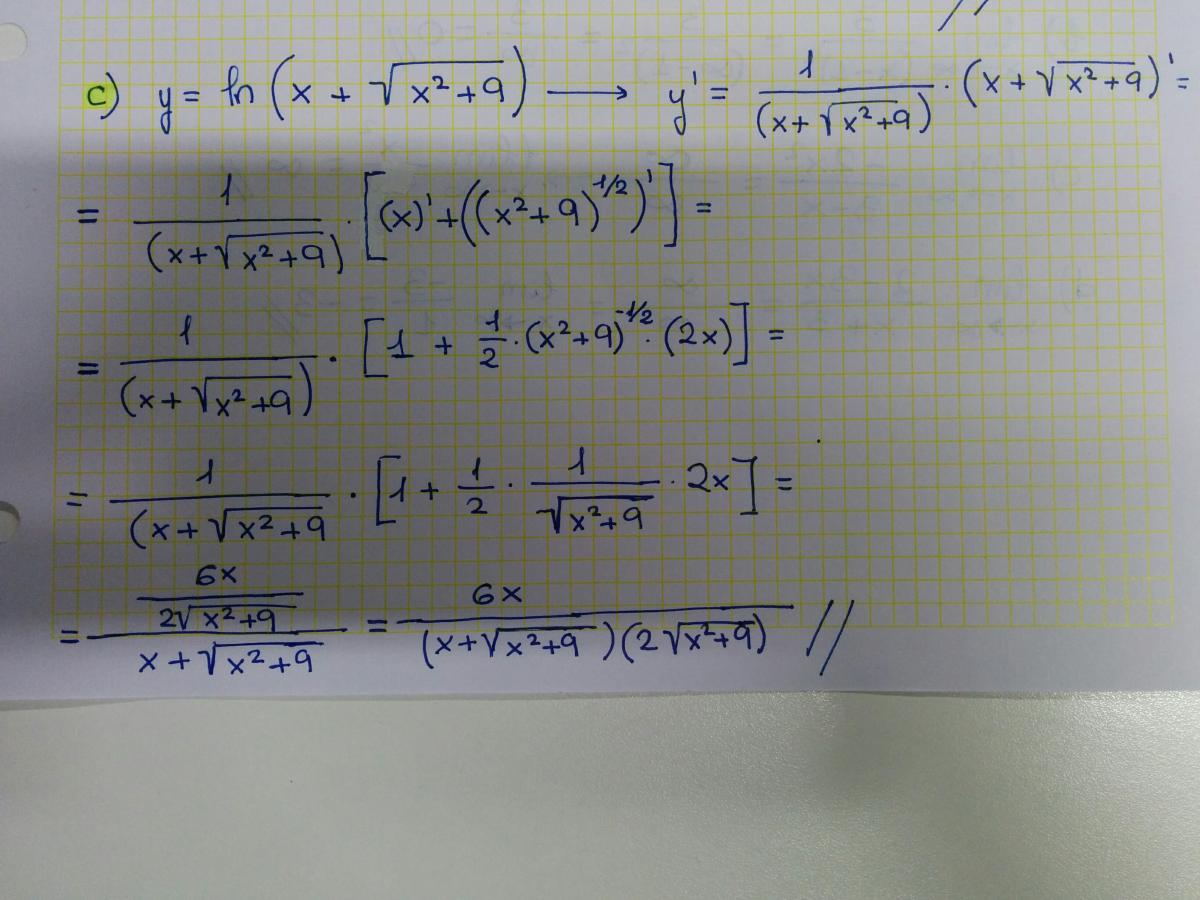 c) y = ln (x + √(x²+9)) ⟶ y' = 1/(x+√(x²+9)) · (x+√(x²+9))' =
= 1/(x+√(x²+9)) · [(x)' + ((x²+9)^-1/2)'] =
= 1/(x+√(x²+9)) · [1 + 1/2 · (x²+9)^-1/2 · (2x)] =
= 1/(x+√(x²+9) · [1 + 1/2 · 1/√(x²+9) · 2x] =
= (6x/(2√(x²+9)))/(x+√(x²+9)) = 6x/((x+√(x²+9))(2√(x²+9))) //